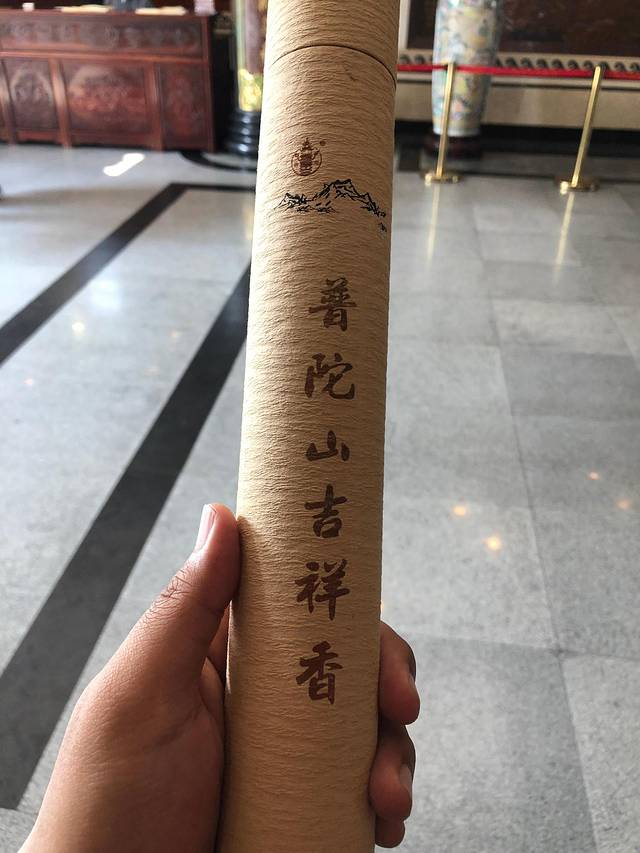 普陀山吉祥香